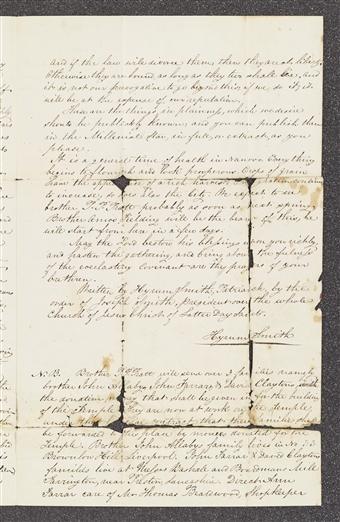 and if the law will divorce them then they are at liberty
otherwise they are bound as long as they live shall be, and
it is not our prerogative to go beyond this if we do it it
will be at the expense of our reputation.
These are the things in plainness, which we desire
should be publickly known; and you can publish them
in the Millenial Star, in full, or extract, as you
please.
It is a general time of health in Nauvoo Every thing
begins to flourish and look prosperous Crops of grain
have the appearance of a rich harvest
to increase, so does the City. We expect to see
brother P. P. Pratt probably as soon as next spring
Brother Amos Fielding will be the bearer of this, he
will start from here in a few days.
May the Lord bestow his blessings upon you richly,
and hasten the gathering and bring about the fulness
of the everlasting Covenant are the prayers of your
brethren.
Written by Hyrum Smith, Patriarch, by the
order of Joseph Smith, president over the whole
Church of Jesus Christ of Latter Day Saints.
Hyrum Smith
N.B. Brother Pratt will send over 3 families namely
brother John Allaby John Farrar & David Clayton with
the donation that shall be given in for the building
of the Temple They are now at work on the temple
under contract that their families shall
be forwarded to this place by monies donated for the
Temple. Brother John Allaby family lives in No 73
Brownlow Hill Liverpool. John Farrar & David Claytons
families live at Messrs Bashall and Boardmans Mill
Farrington, near Preston Lancashire Direct Ann
Farrar care of Mr Thomas Braidwood Shopkeeper